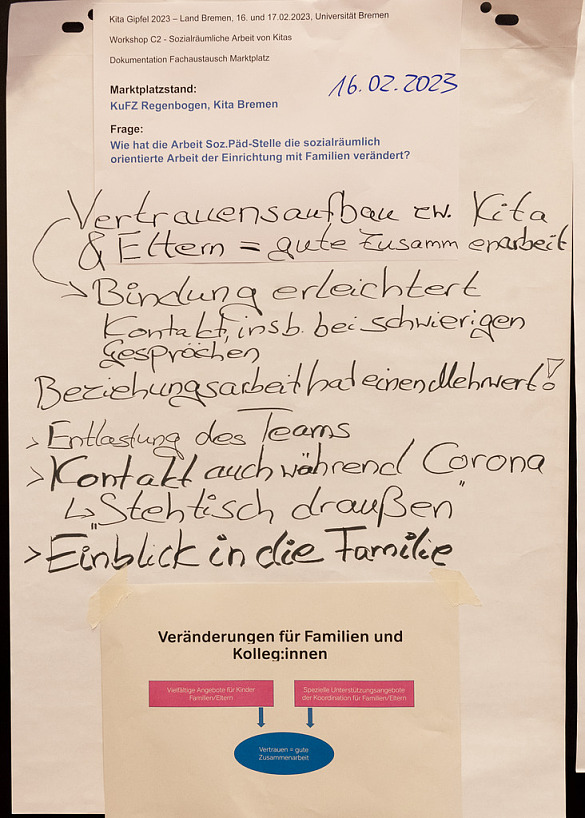 Kita Gipfel 2023 – Land Bremen, 16. und 17.02.2023, Universität Bremen
Workshop C2 - Sozialräumliche Arbeit von Kitas
Dokumentation Fachaustausch Marktplatz
16.02.2023
Marktplatzstand:
KuFZ Regenbogen, Kita Bremen
Frage:
Wie hat die Arbeit Soz.Päd-Stelle die sozialräumlich
orientierte Arbeit der Einrichtung mit Familien verändert?
Vertrauensaufbau zw. Kita
& Eltern = gute Zusammenarbeit
→ Bindung erleichtert
Kontakt, insb. bei schwierigen
Gesprächen
Beziehungsarbeit hat einen Mehrwert!
> Entlastung des Teams
> Kontakt auch während Corona
↳ "Stehtisch draußen"
> Einblick in die Familie
Veränderungen für Familien und
Kolleg:innen
Vielfältige Angebote für Kinder
Familien/Eltern
Spezielle Unterstützungsangebote
der Koordination für Familien/Eltern
Vertrauen = gute
Zusammenarbeit